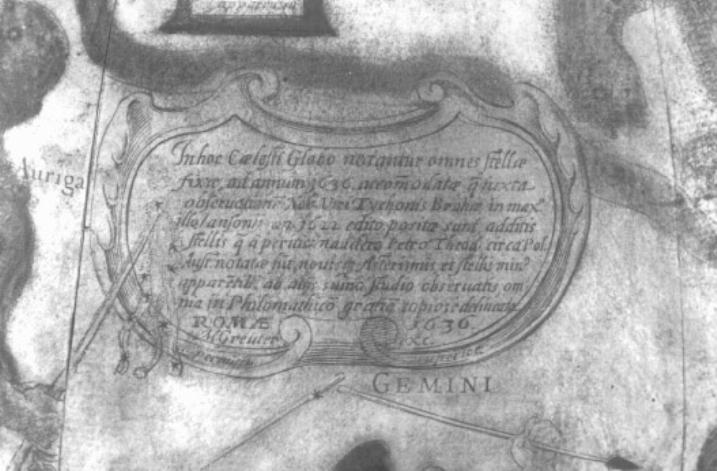 apparentia
In hoc Cælesti Globo notantur omnes stellæ
fixæ, ad annum 1636. accom̃odatæ q̃ iuxta
obseruationẽ Nob. Viri Tychonis Brahæ in max.
illo Iansonii an 1622 edito positæ sunt, additis
stellis q̃ a perito nauclero Petro Theod. circa Pol.
Aust. notatæ sũt, nouisq; Asterismis et stellis min.
apparẽtib. ab alijs sum̃o studio obseruatis om
nia in Philomathicõ gratiã copiose delineata
ROMÆ 1636.
M. Greuter exc.
superior.
Auriga
GEMINI